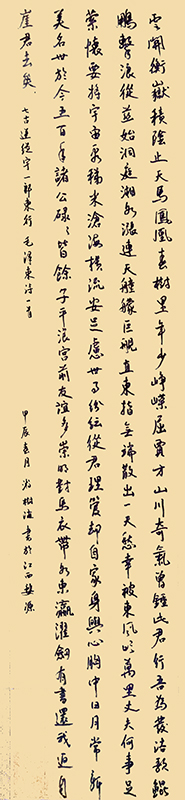 雲開衡嶽積陰止天馬鳳凰春樹里年少崢嶸屈賈才山川奇氣曾鍾此君行吾為發浩歌鯤
鵬擊浪從茲始洞庭湘水漲連天艟艨巨艦直東指無端散出一天愁幸被東風吹萬里丈夫何事足
縈懷要將宇宙看稊米滄海橫流安足慮世事紛紜從君理管却自家身與心胸中日月常新
美名世於今五百年諸公碌々皆餘子平浪宮前友誼多崇明對馬衣帶水東瀛濯劍有書還我返自
崖君去矣
七古送從宇一郎東行 毛澤東詩一首
甲辰春月 樹海書於江西婺源